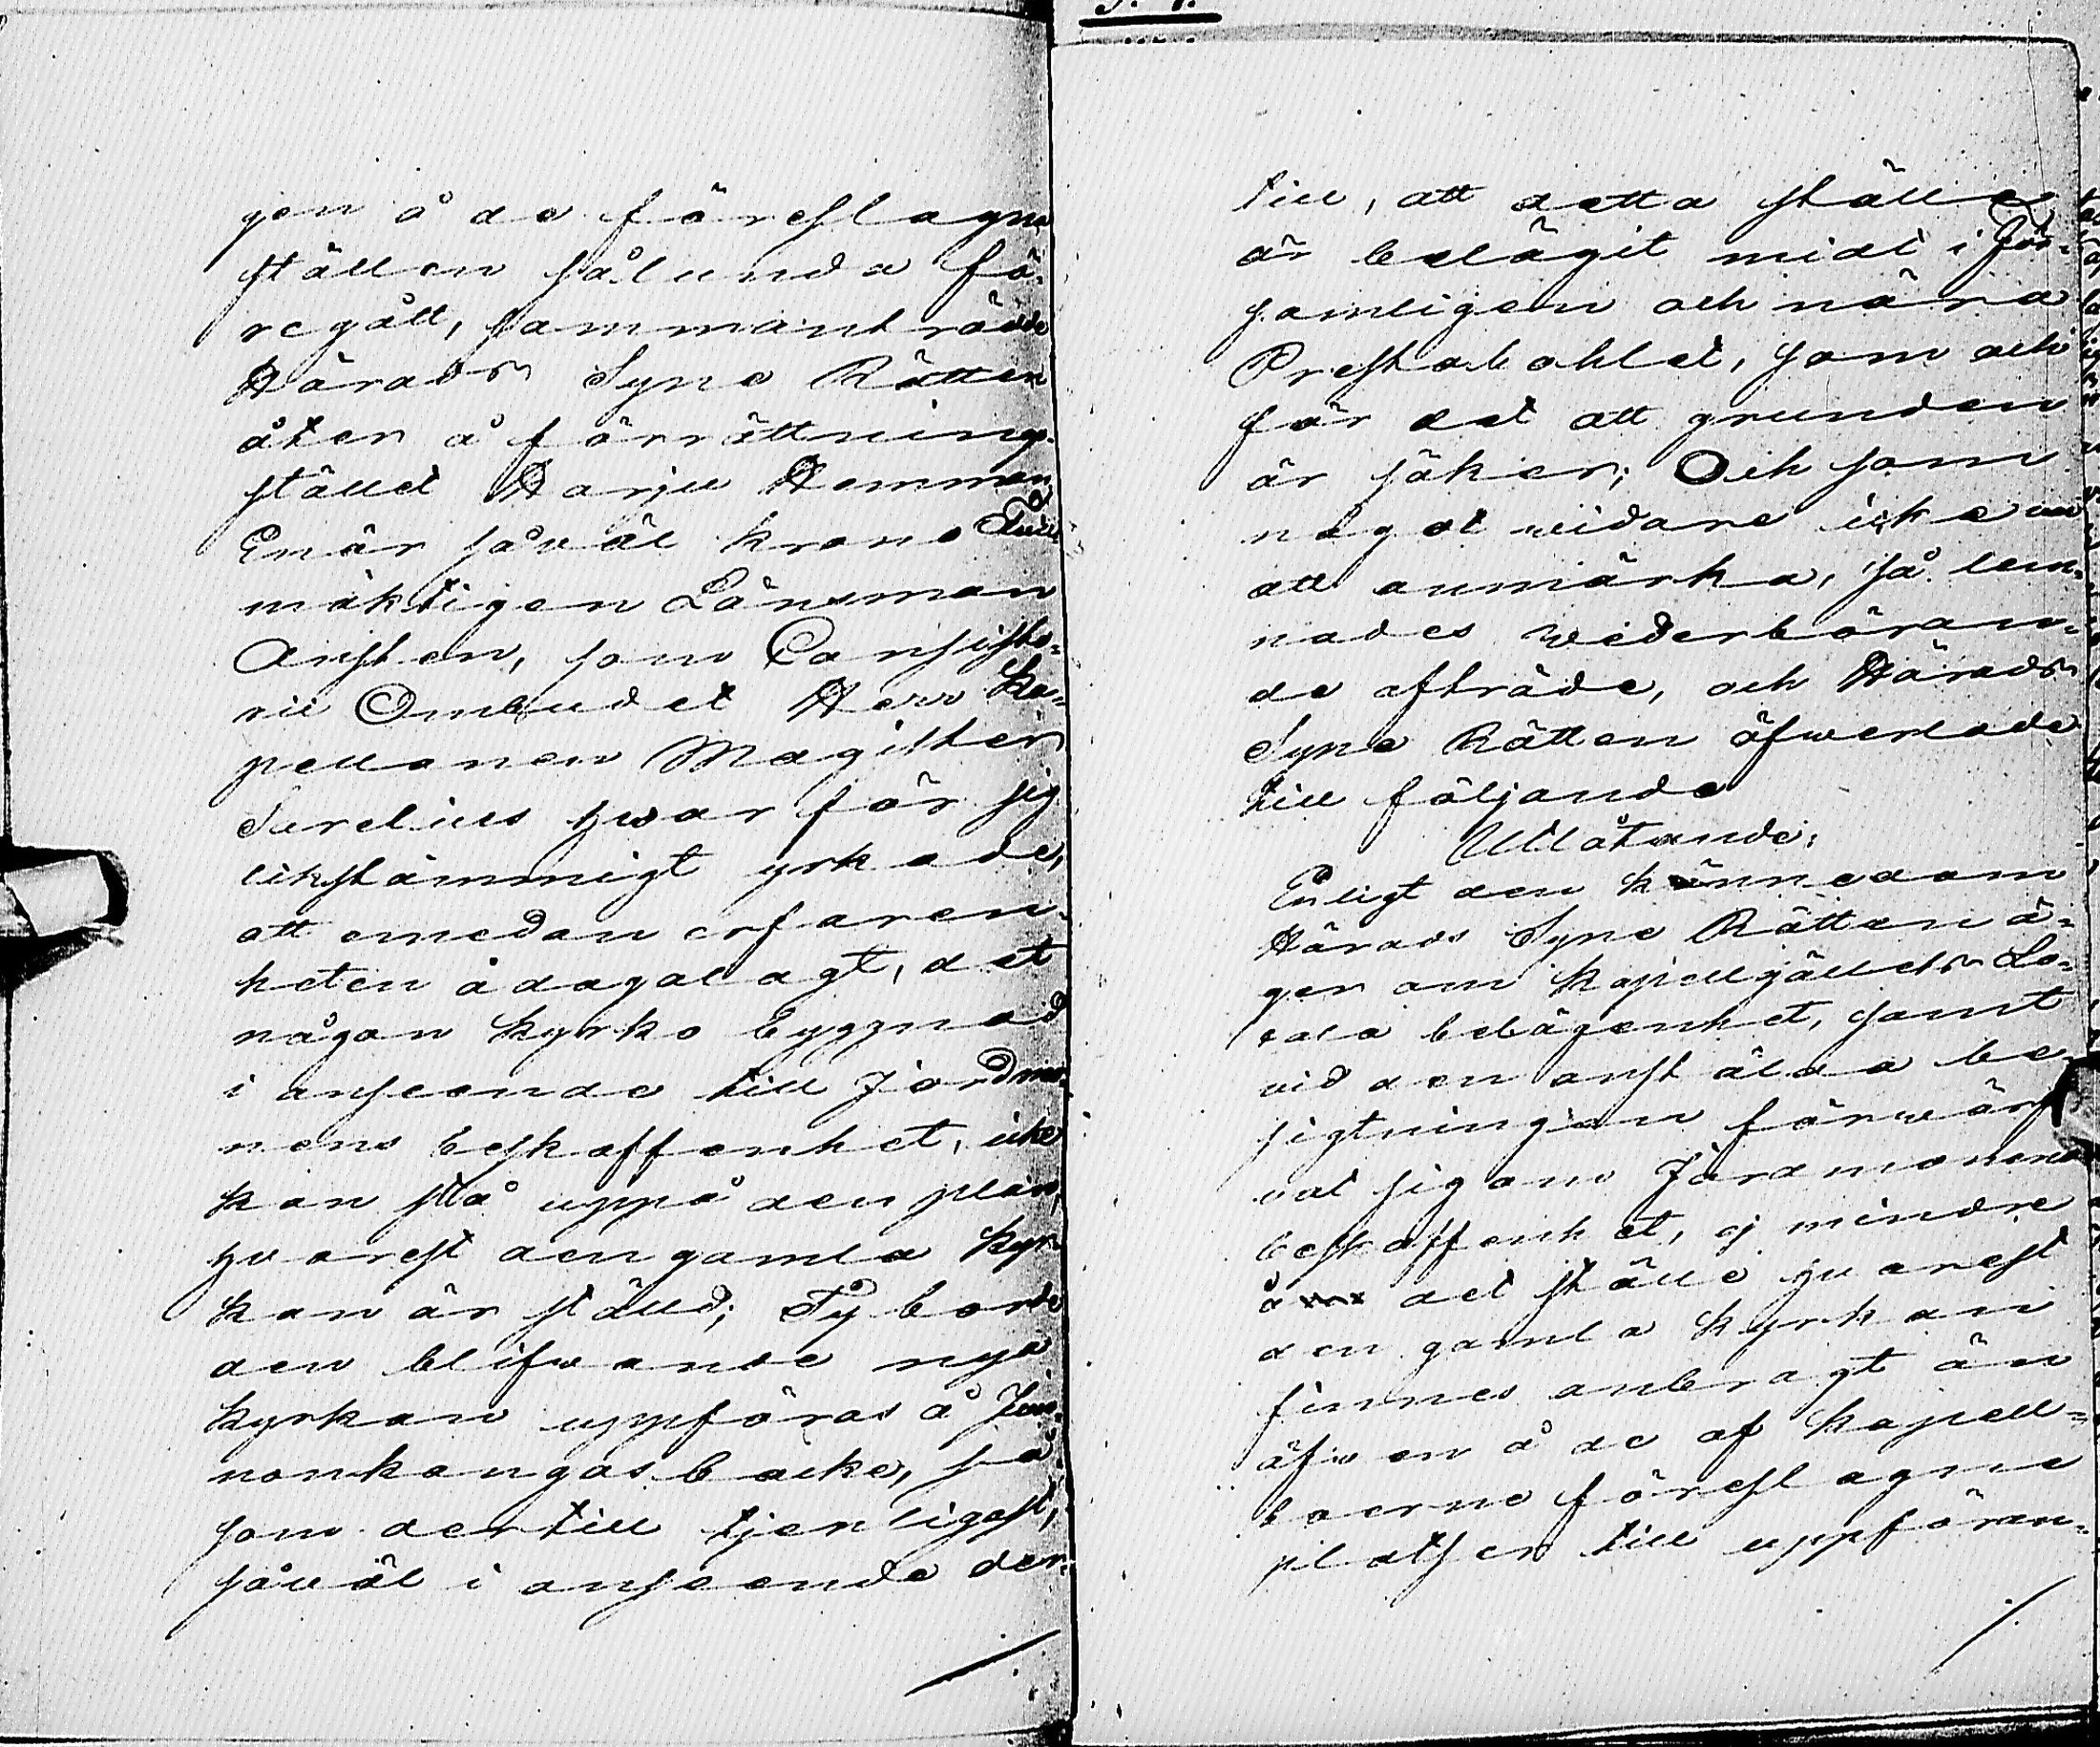 gen å de föreslagne
ställen sålunda fö-
regått, sammanträdde
Härads Syne Rätten
åter å förrättnings-
stället Harju Hemman
Enär såväl krono Full-
mäktigen Länsman
som Consisto-
rii Ombudet Herr Ka-
pellanen Magister
Sarelius hvar för sig
likstämmigt yrkade,
att emedan erfaren-
heten ådagalagt, det
någon kyrko byggnad
i anseende till Jordmo-
nens beskaffenhet, icke
kan stå uppå den plan,
hvarest den gamla kyr-
kan är ställd; Ty borde
den blifwande nya
kyrkan uppföras å
nonkangas backe, så-
som dertill tjenligast,
såväl i anseende der-
till, att detta ställe
är belägit midt i För-
samligen och nära
Prestabohlet, som och
för det att grunden
är säker; Och som
något widare icke war
att anmärka, så lem-
nades wederböran-
de afträde, och Härads
Syne Rätten öfwerlade
till följande
Utlåtande:
Enligt den kännedom
Härads Syne Rätten ä-
ger om kapellgällets Lo-
cala belägenhet, samt
vid den anstälda be-
sigtningen förwärf-
vat sig om Jordmonens
beskaffenhet, ej mindre
å det ställe hvarest
den gamla kyrkan
finnes anbragt än
äfwen å de af kapell-
boerne föreslagne
platser till uppföran-